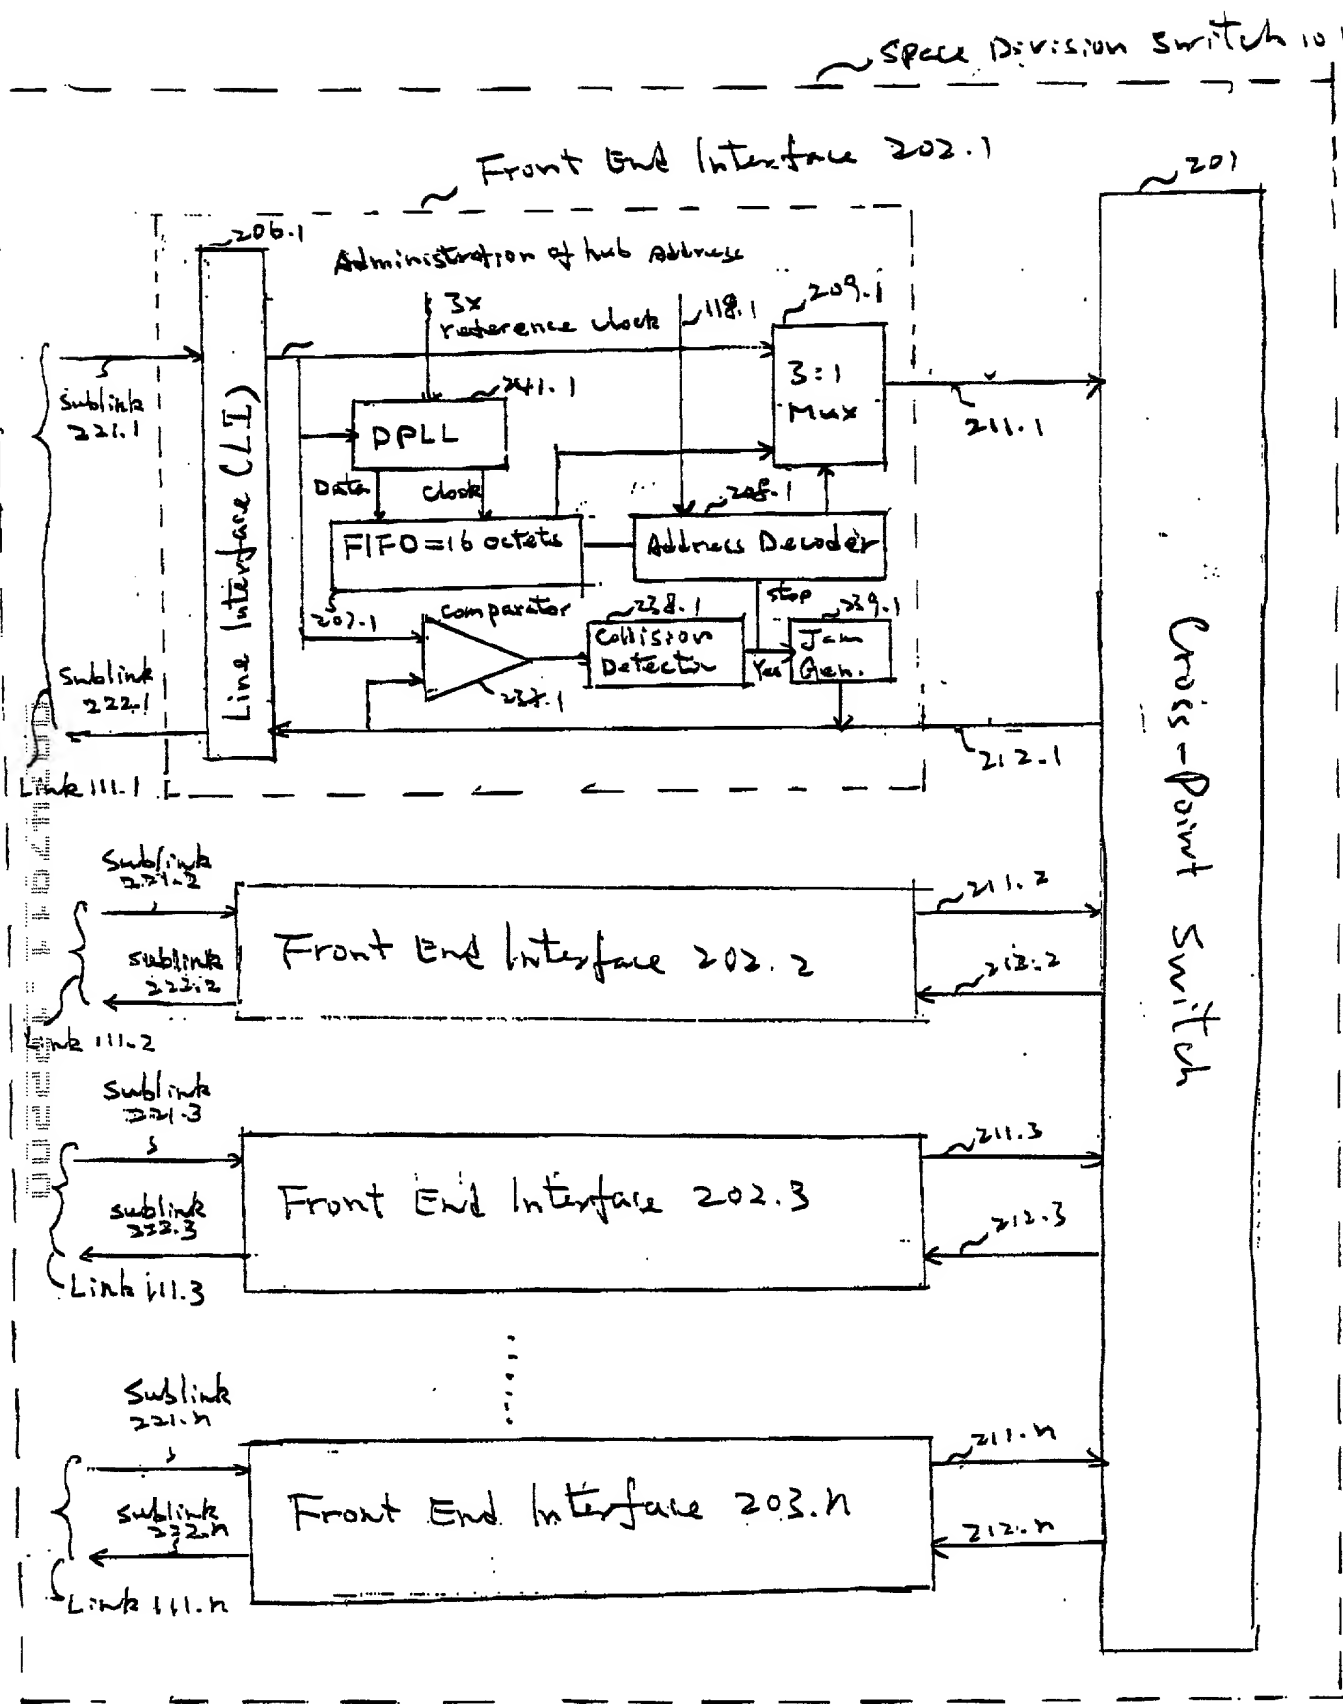 Space Division Switch 101
Front End Interface 202.1
201
206.1
Administration of hub Address
3x
reference clock
118.1
209.1
3:1
Mux
Sublink
221.1
Line Interface (LI)
241.1
DPLL
211.1
Data
Clock
208.1
FIFO=16 octets
Address Decoder
207.1
comparator
238.1
stop
239.1
Collision
Detector
Yes
Jam
Gen.
237.1
Sublink
222.1
212.1
Link 111.1
Cross-Point Switch
Sublink
221.2
211.2
Front End Interface 202.2
sublink
222.2
212.2
Link 111.2
Sublink
221.3
211.3
Front End Interface 202.3
sublink
222.3
212.3
Link 111.3
Sublink
221.n
211.n
Front End Interface 203.n
sublink
222.n
212.n
Link 111.n